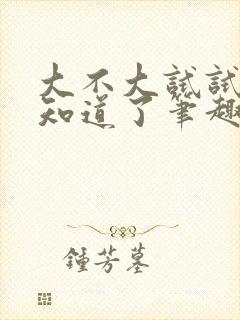 大不大試試
知道了筆趣
鍾芳墓